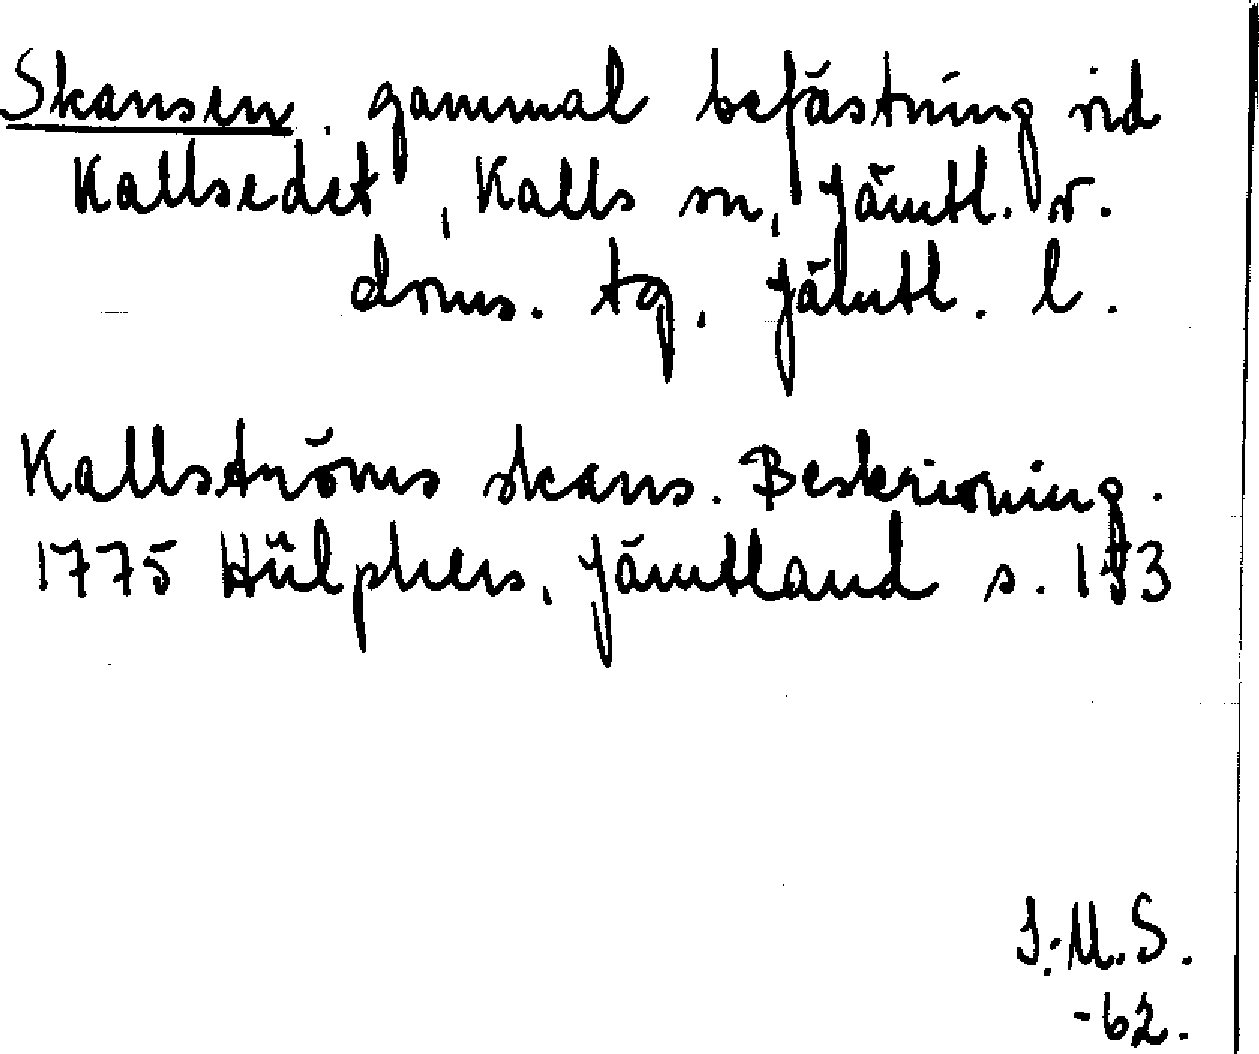 Skansen, gammal befästning vid
Kallsedet, Kalls sn, Jämtl. v.
doms. tg, Jämtl. l.
Kallströms skans. Beskrivning.
1775 Hülphers, Jämtland s. 153
J.M.S.
-62.